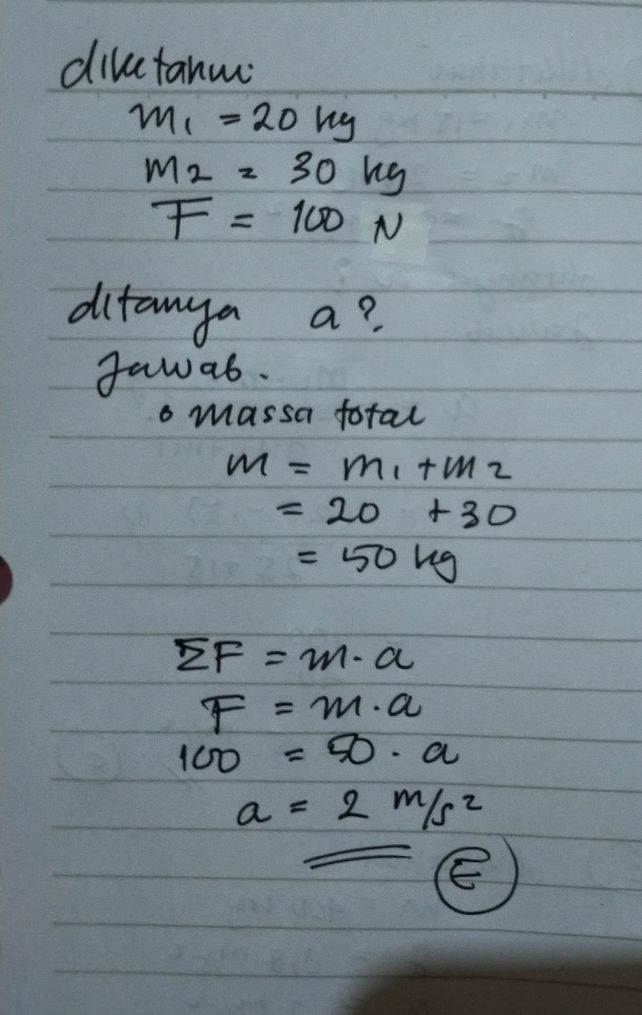 diketahui:
m1 = 20 kg
m2 = 30 kg
F = 100 N
ditanya a?
Jawab.
• massa total
m = m1 + m2
= 20 + 30
= 50 kg
ΣF = m · a
F = m · a
100 = 50 · a
a = 2 m/s²
E